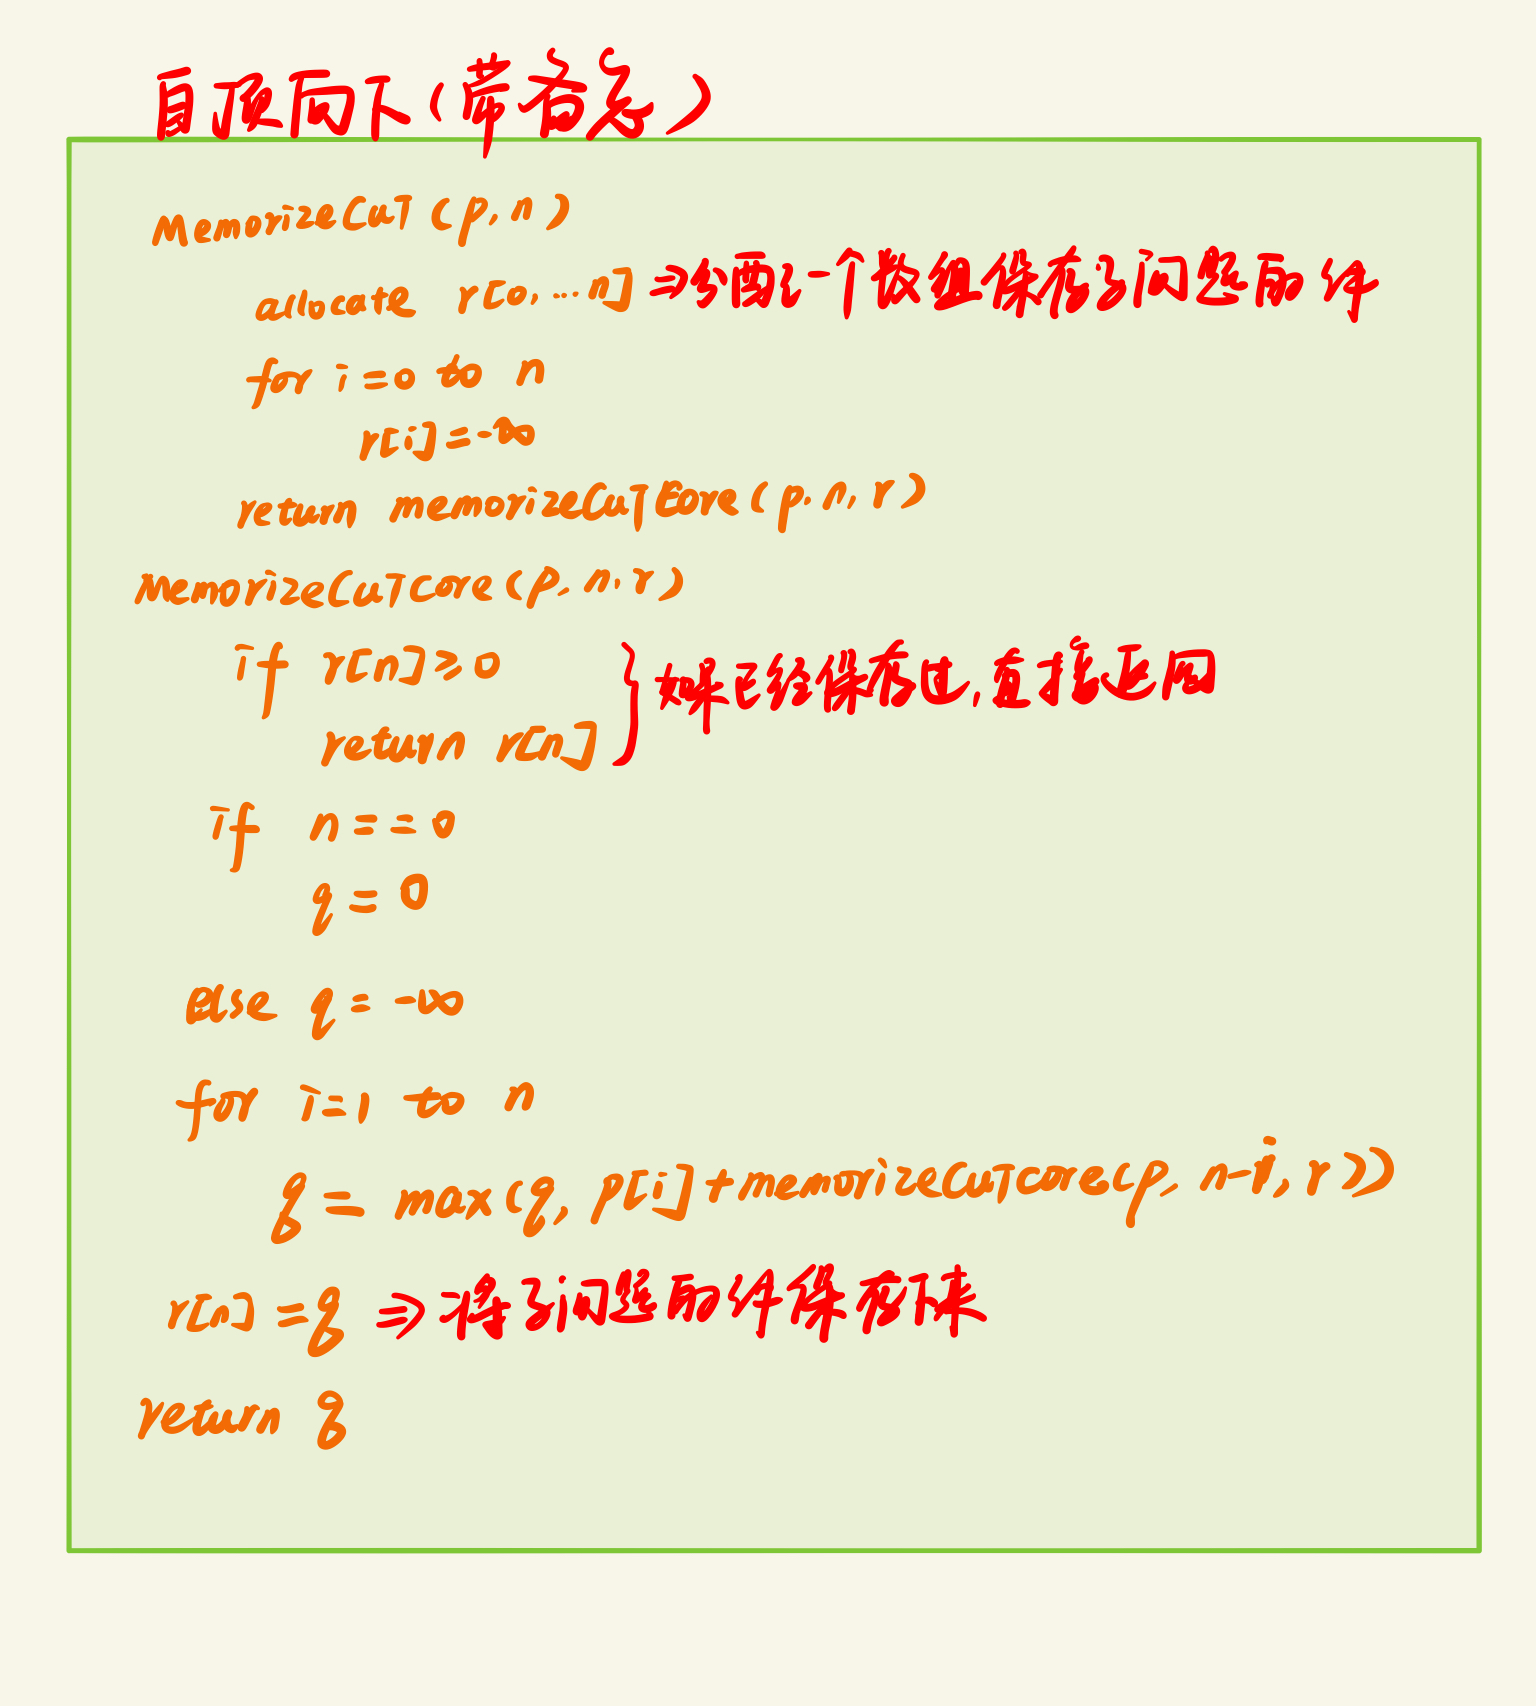 自顶向下(带备忘)
MemorizeCuT(p,n)
allocate r[0,...n] ⇒分配了一个数组保存子问题的解
for i=0 to n
r[i]=-∞
return memorizeCuTCore(p.n,r)
MemorizeCuTcore(p,n,r)
if r[n]≥0
return r[n] } 如果已经保存过,直接返回
if n==0
q=0
else q=-∞
for i=1 to n
q=max(q,p[i]+memorizeCuTcore(p,n-i,r))
r[n]=q ⇒将子问题的解保存下来
return q